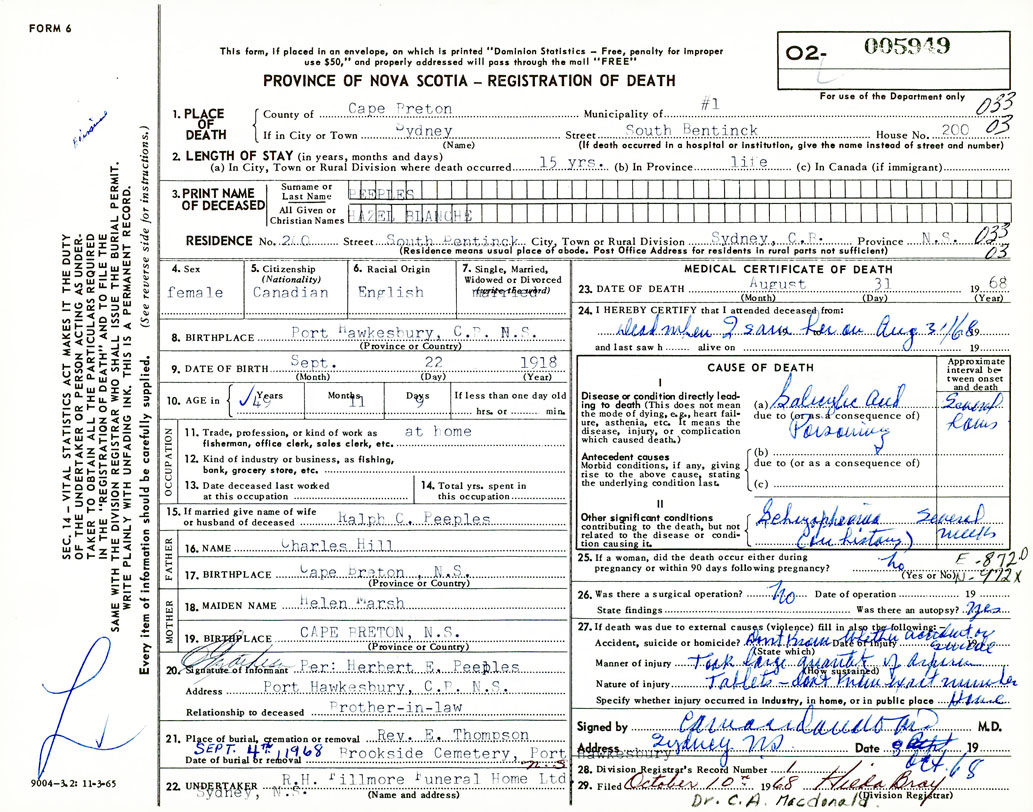 FORM 6
This form, if placed in an envelope, on which is printed "Dominion Statistics – Free, penalty for improper
use $50," and properly addressed will pass through the mail "FREE"
PROVINCE OF NOVA SCOTIA – REGISTRATION OF DEATH
O2- 005949
For use of the Department only
033
03
1. PLACE OF DEATH
County of Cape Breton Municipality of #1
If in City or Town Sydney Street South Bentinck House No. 200
(Name) (If death occurred in a hospital or institution, give the name instead of street and number)
2. LENGTH OF STAY (in years, months and days)
(a) In City, Town or Rural Division where death occurred 15 yrs. (b) In Province life (c) In Canada (if immigrant)
3. PRINT NAME OF DECEASED
Surname or Last Name PEEPLES
All Given or Christian Names HAZEL BLANCHE
RESIDENCE No. 200 Street South Bentinck City, Town or Rural Division Sydney, C.B. Province N.S. 033
03
(Residence means usual place of abode. Post Office Address for residents in rural parts not sufficient)
4. Sex
female
5. Citizenship
(Nationality)
Canadian
6. Racial Origin
English
7. Single, Married,
Widowed or Divorced
(write the word)
married
8. BIRTHPLACE Port Hawkesbury, C.B. N.S.
(Province or Country)
9. DATE OF BIRTH Sept. 22 1918
(Month) (Day) (Year)
10. AGE in Years Months Days If less than one day old
49 11 9 hrs. or min.
OCCUPATION
11. Trade, profession, or kind of work as at home
fisherman, office clerk, sales clerk, etc.
12. Kind of industry or business, as fishing,
bank, grocery store, etc.
13. Date deceased last worked
at this occupation
14. Total yrs. spent in
this occupation
15. If married give name of wife
or husband of deceased Ralph C. Peeples
FATHER
16. NAME Charles Hill
17. BIRTHPLACE Cape Breton, N.S.
(Province or Country)
MOTHER
18. MAIDEN NAME Helen Marsh
19. BIRTHPLACE CAPE BRETON, N.S.
(Province or Country)
20. Signature of Informant Per: Herbert E. Peeples
Address Port Hawkesbury, C.B. N.S.
Relationship to deceased Brother-in-law
21. Place of burial, cremation or removal Rev. E. Thompson
Date of burial or removal SEPT. 4TH 1968 Brookside Cemetery, Port Hawkesbury
N.S.
22. UNDERTAKER R.H. Fillmore Funeral Home Ltd
Sydney, N.S. (Name and address)
MEDICAL CERTIFICATE OF DEATH
23. DATE OF DEATH August 31 19 68
(Month) (Day) (Year)
24. I HEREBY CERTIFY that I attended deceased from:
Dead when I saw her on Aug 31/68 19
and last saw h alive on 19
CAUSE OF DEATH
Approximate interval between onset and death
I
Disease or condition directly leading to death (This does not mean the mode of dying, e.g., heart failure, asthenia, etc. It means the disease, injury, or complication which caused death.)
(a) Salicylic Acid
due to (or as a consequence of)
Poisoning
Several
hours
Antecedent causes
Morbid conditions, if any, giving rise to the above cause, stating the underlying condition last.
(b)
due to (or as a consequence of)
(c)
II
Other significant conditions
contributing to the death, but not related to the disease or condition causing it.
Schizophrenia Several
(by history) weeks
25. If a woman, did the death occur either during
pregnancy or within 90 days following pregnancy? no
(Yes or No)
E-872.0
N-972X
26. Was there a surgical operation? No Date of operation 19
State findings Was there an autopsy? Yes
27. If death was due to external causes (violence) fill in also the following:
Accident, suicide or homicide? Dont know whether accident or suicide Date of injury 19
(State which)
Manner of injury Took large quantity of aspirin
(How sustained)
Nature of injury Tablets – don't know exact number
Specify whether injury occurred in Industry, in home, or in public place Home
Signed by M.D.
Address Sydney NS Date 9 Oct 68 19
28. Division Registrar's Record Number 1
29. Filed October 10th 1968 Hilda Bray
(Division Registrar)
Dr. C. A. Macdonald
SEC. 14 – VITAL STATISTICS ACT MAKES IT THE DUTY
OF THE UNDERTAKER OR PERSON ACTING AS UNDER-
TAKER TO OBTAIN ALL THE PARTICULARS REQUIRED
IN THE "REGISTRATION OF DEATH" AND TO FILE THE
SAME WITH THE DIVISION REGISTRAR WHO SHALL ISSUE THE BURIAL PERMIT.
WRITE PLAINLY WITH UNFADING INK. THIS IS A PERMANENT RECORD.
Every item of information should be carefully supplied. (See reverse side for instructions.)
9004–3.2: 11-3-65